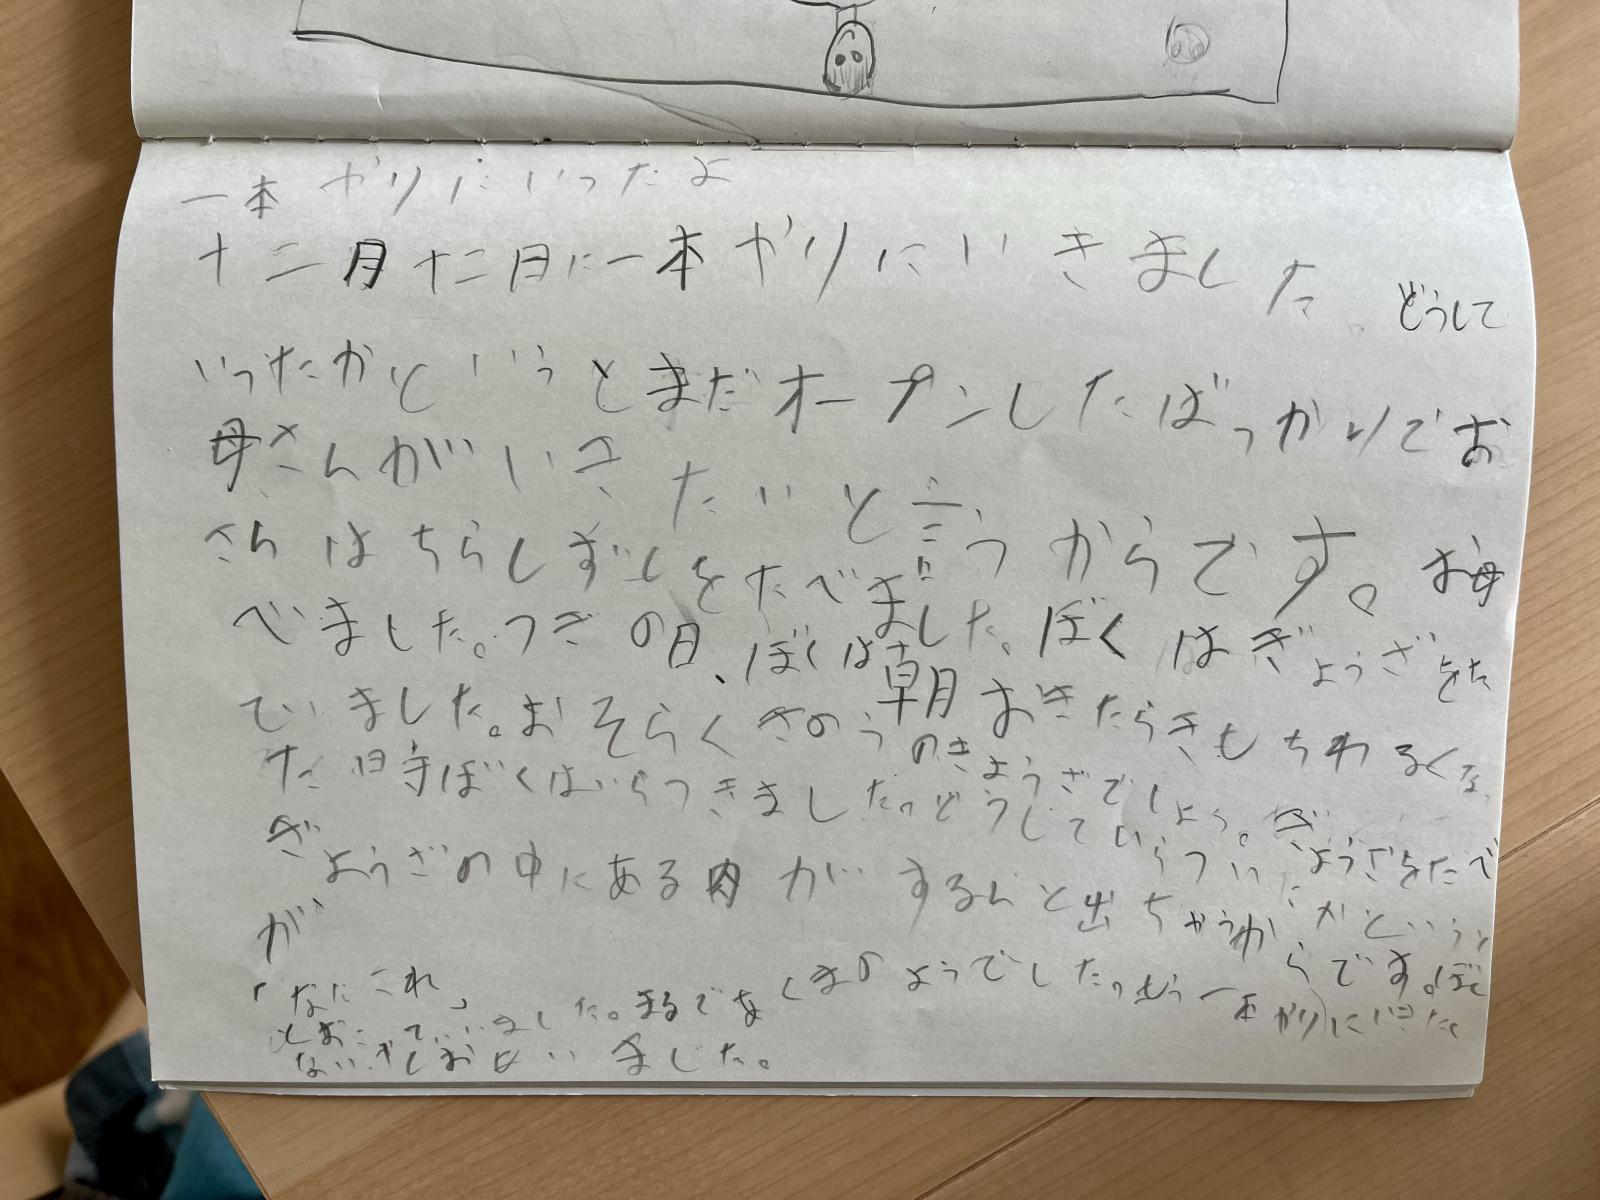 一本やりにいったよ
十二月十二日に一本やりにいきました。どうして
いったかというとまだオープンしたばっかりでお
母さんがいきたいと言うからです。お母
さんはちらしずしをたべました。ぼくはぎょうざをた
べました。つぎの日、ぼくは朝おきたらきもちわるくな
ていました。おそらくきのうのぎょうざでしょう。ぎょうざをたべ
た時ぼくはいらつきました。どうしていらついたかというと
ぎょうざの中にある肉がするんと出ちゃうからです。ぼく
が
「なんだこれ」
とおこっていいました。まるであくまのようでした。もう一本やりにいきたく
ないかしおもいました。